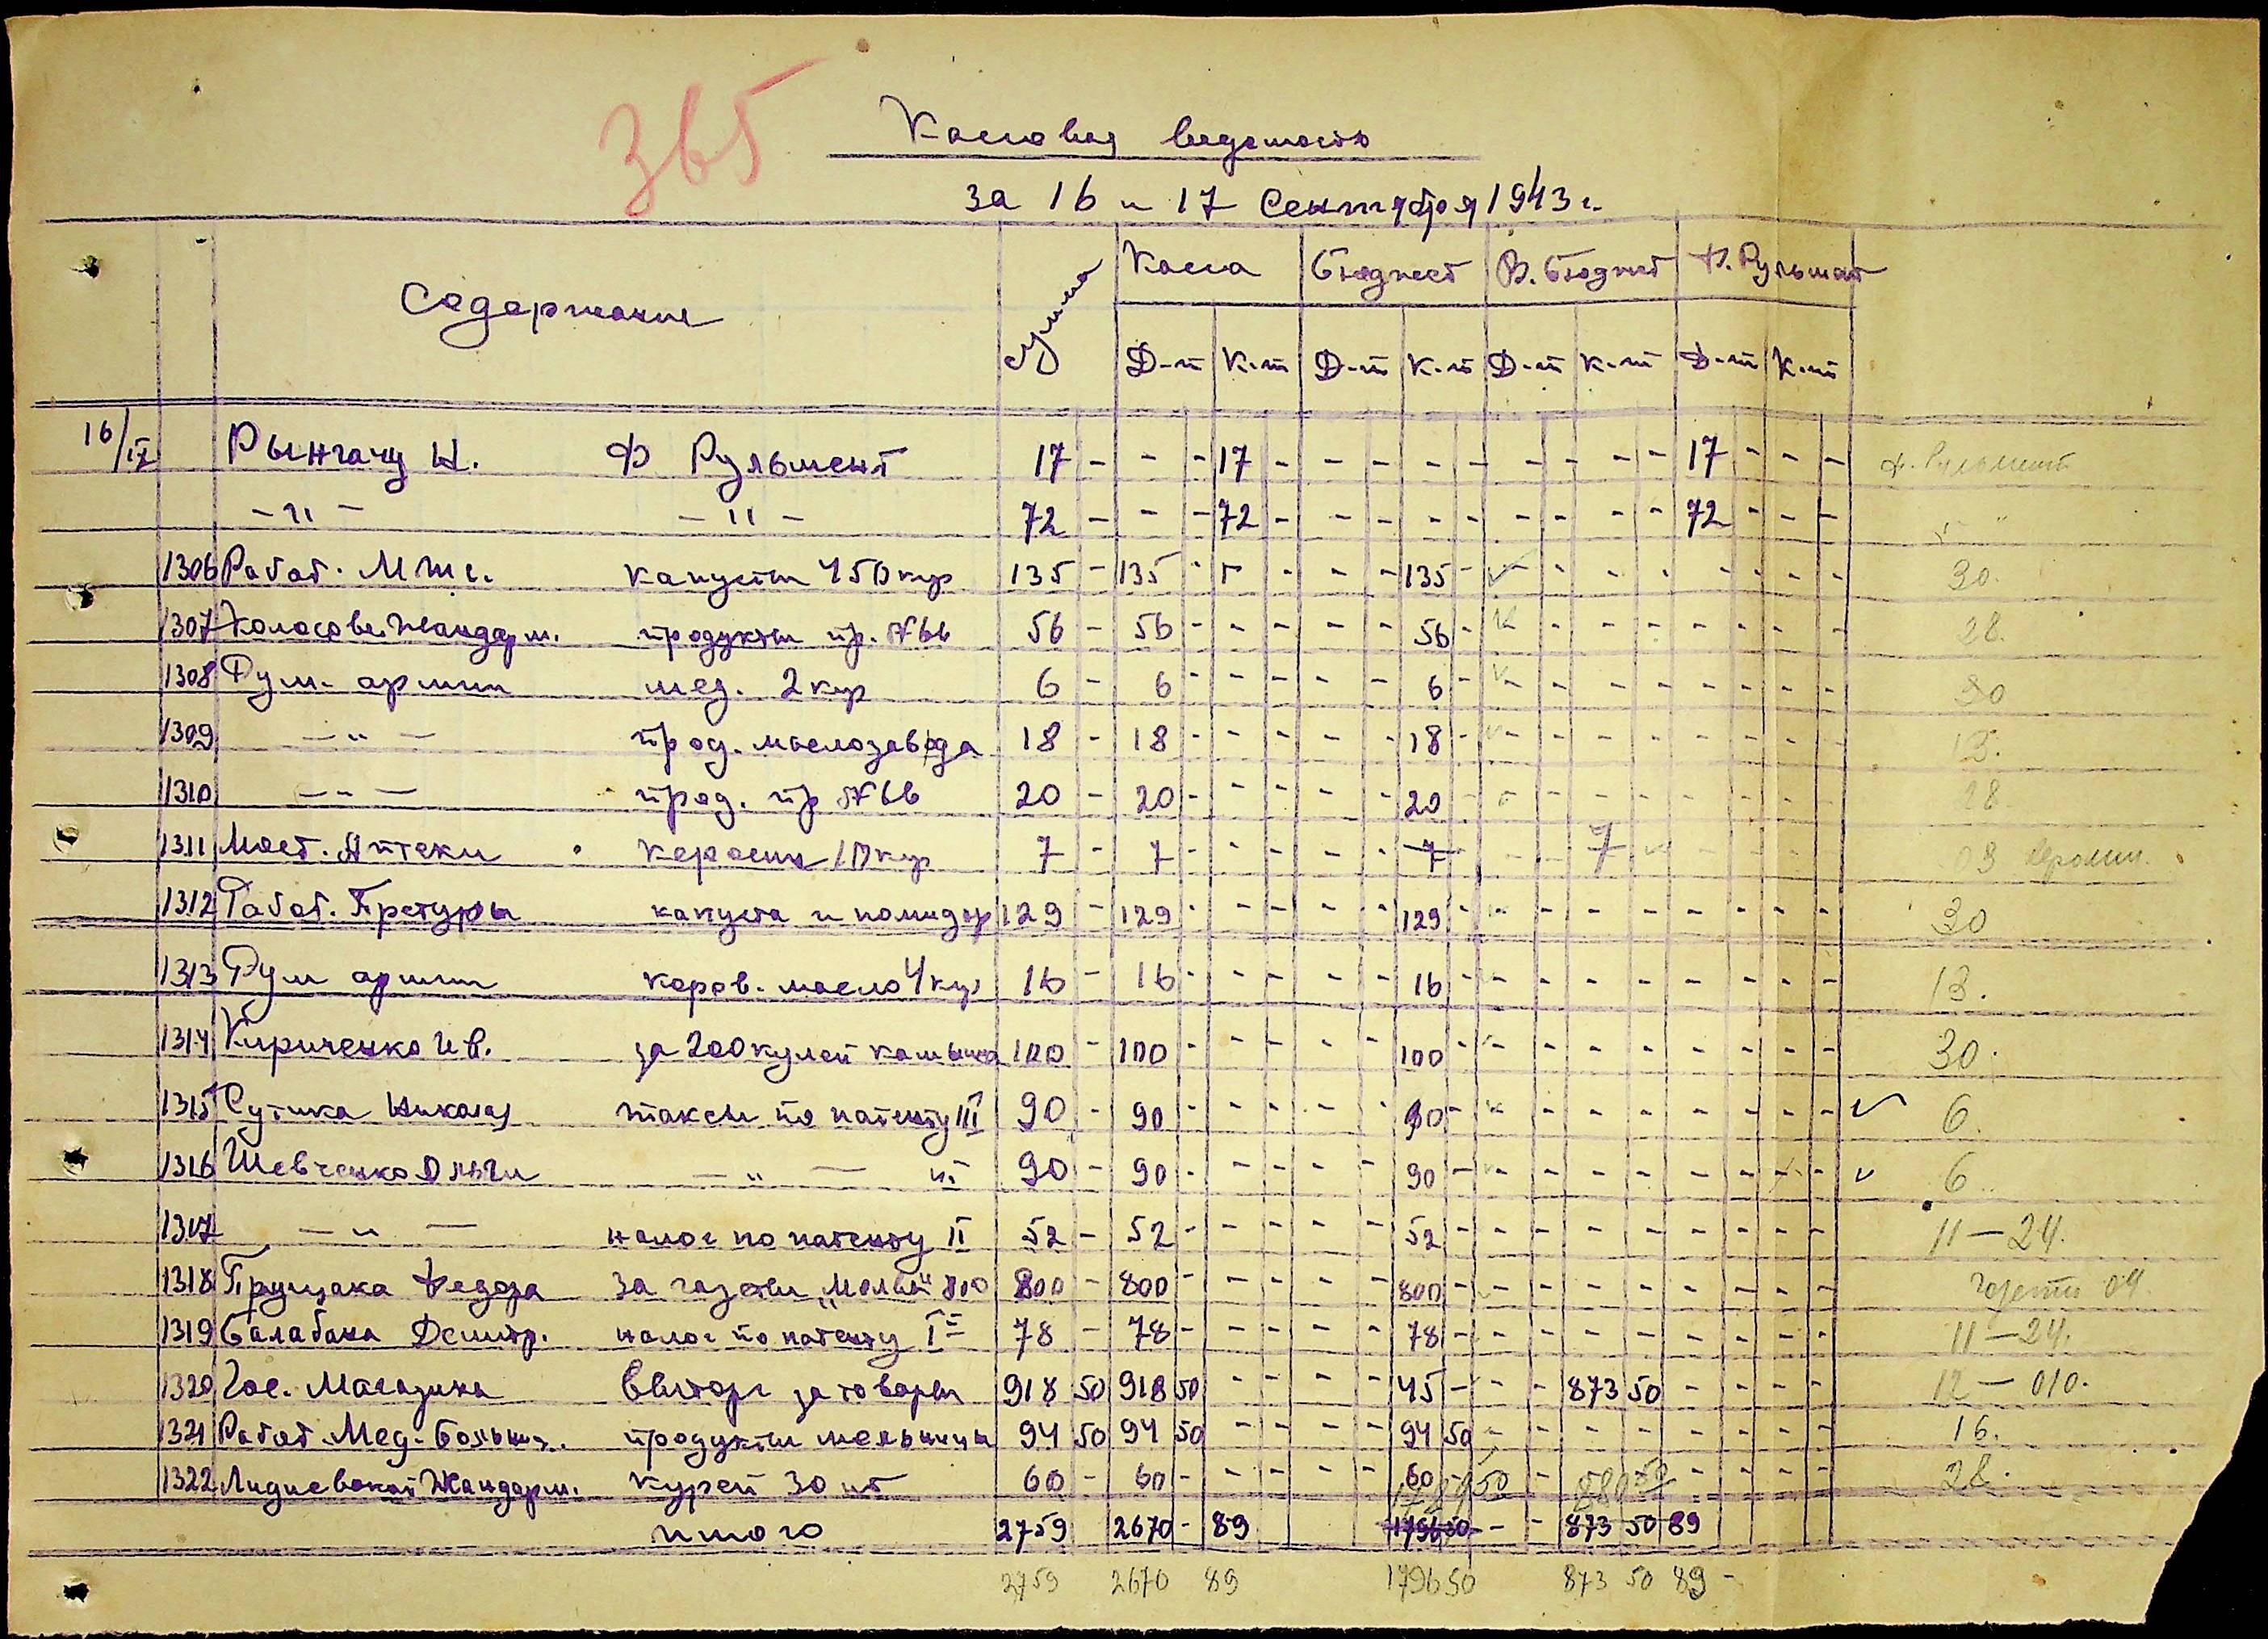 365
Кассовая ведомость
за 16 и 17 Сентября 1943 г.
Содержание Сумма Касса Бюджет В. Бюджет Ф. Рульмент
Д-т К-т Д-т К-т Д-т К-т Д-т К-т
16/IX Рынгачу Н. Ф Рульмент 17 - - - 17 - - - - - - - - - 17 - - - Ф. Рульмент
- 〃 - - 〃 - 72 - - - 72 - - - - - - - - - 72 - - - 〃
1306 Работ. М т с. капусты 450 кгр 135 - 135 - - - - - 135 - - - - - - - - - 30.
1307 Колосов. Жандарм. продукты пр. № 66 56 - 56 - - - - - 56 - - - - - - - - - 28.
1308 Рум. армии мед. 2 кгр 6 - 6 - - - - - 6 - - - - - - - - - 30
1309 - 〃 - прод. маслозавода 18 - 18 - - - - - 18 - - - - - - - - - 13.
1310 - 〃 - прод. пр № 66 20 - 20 - - - - - 20 - - - - - - - - - 28.
1311 Мост. Аптеки керосин 10 кгр 7 - 7 - - - - - 7 - - 7 - - - - 03
1312 Работ. Претуры капуста и помидор 129 - 129 - - - - - 129 - - - - - - - - - 30
1313 Рум армии коров. масло 4 кгр 16 - 16 - - - - - 16 - - - - - - - - - 13.
1314 Кириченко Ив. за 200 кулей камыша 100 - 100 - - - - - 100 - - - - - - - - - 30.
1315 Сутика Николая таксы по патенту III 90 - 90 - - - - - 90 - - - - - - - - - ✓ 6.
1316 Шевченко Ольги - 〃 - III 90 - 90 - - - - - 90 - - - - - - - - - ✓ 6.
1317 - 〃 - налог по патенту II 52 - 52 - - - - - 52 - - - - - - - - - 11 — 24.
1318 Прущака Федора за газеты „Молва" 800 800 - 800 - - - - - 800 - - - - - - - - - газеты 04.
1319 Балабана Дмитр. налог по патенту I 78 - 78 - - - - - 78 - - - - - - - - - 11 — 24.
1320 Гос. Магазина Выторг за товары 918 50 918 50 - - - - 45 - - - 873 50 - - - - 12 — 010.
1321 Работ. Мед. Больниц. продукты мельницы 94 50 94 50 - - - - 94 50 - - - - - - - - 16.
1322 Лидиевской Жандарм. Курей 30 шт 60 - 60 - - - - - 60 - - - - - - - - - 28.
1789 50 880 50
итого 2759 2670 - 89 1796 50 - - 873 50 89
2759 2670 89 1796 50 873 50 89 -